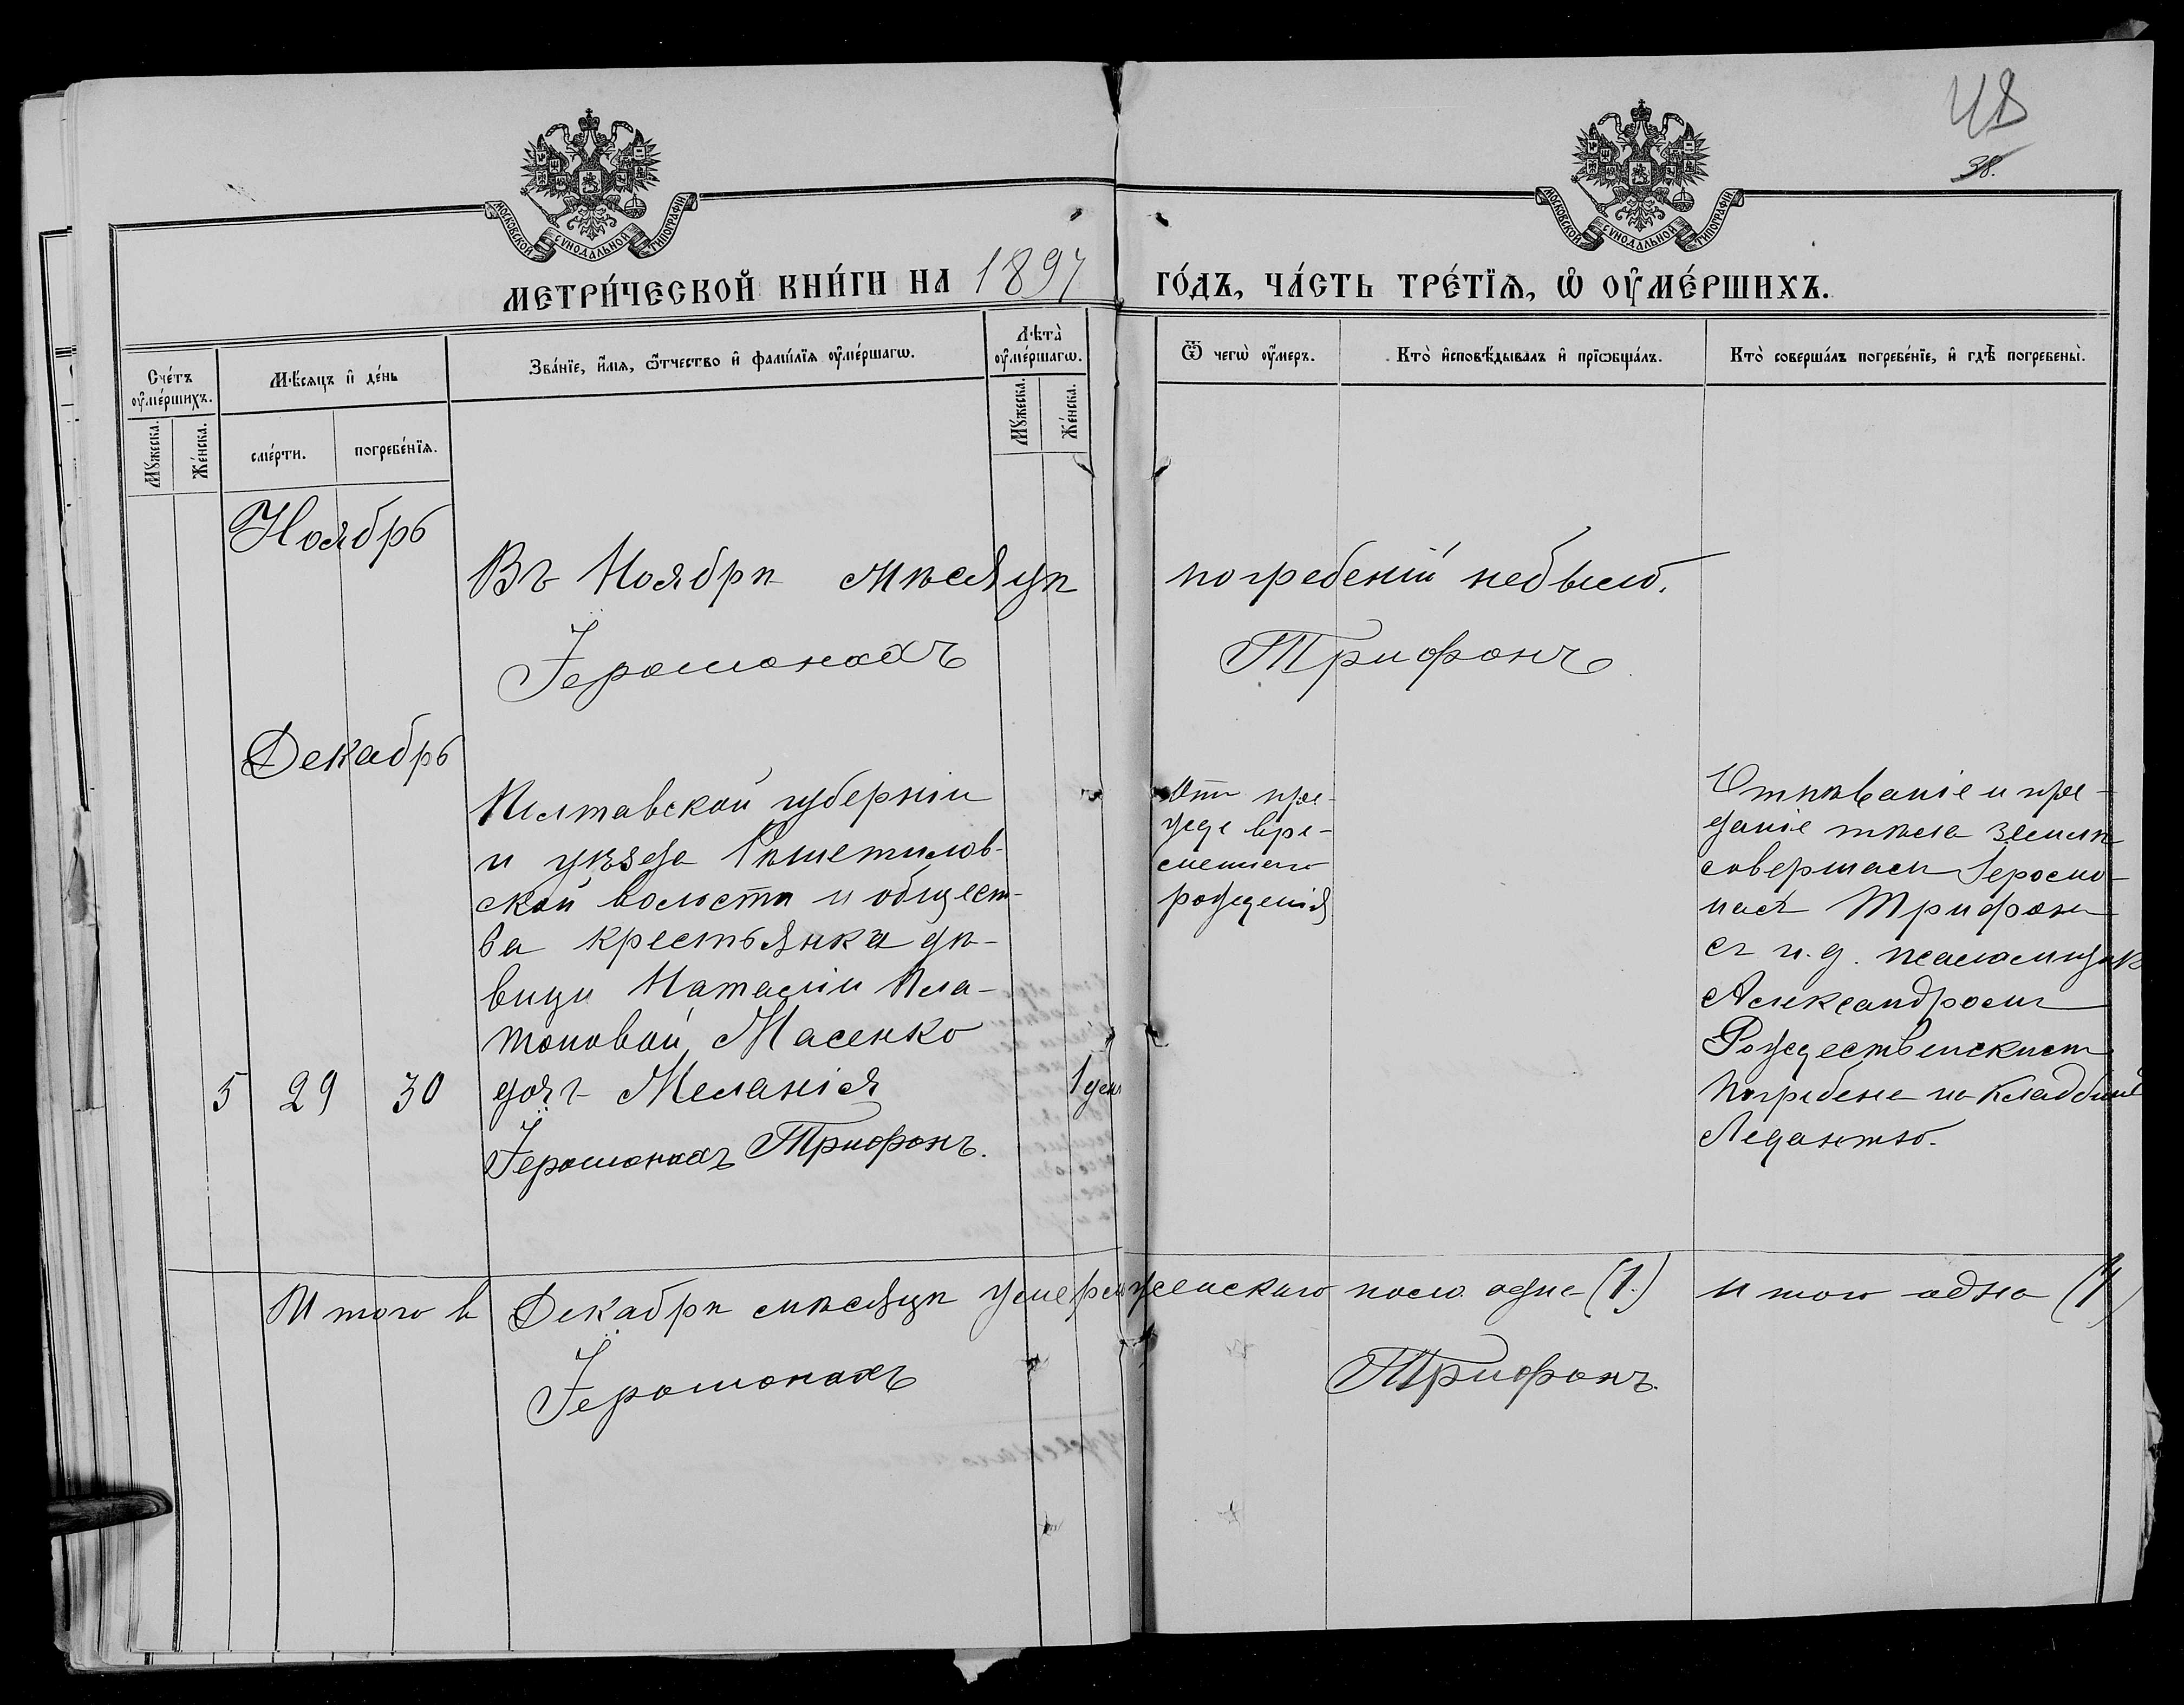 48
38.
МОСКОВСКОЙ СѴНОДАЛЬНОЙ ТИПОГРАФІИ
МОСКОВСКОЙ СѴНОДАЛЬНОЙ ТИПОГРАФІИ
МЕТРИ́ЧЕСКОЙ КНИ́ГИ НА 1897 ГО́ДЪ, ЧА́СТЬ ТРЕ́ТЇѦ, Ѡ҆ ОУ҆МЕ́РШИХЪ.
Сче́тъ оу҆ме́ршихъ.
Мꙋ́жеска.
Же́нска.
Мѣ́сѧцъ и҆ де́нь
сме́рти.
погребе́нїѧ.
Зва́нїе, и҆́мѧ, ѻ҆́тчество и҆ фамі́лїѧ оу҆ме́ршагѡ.
Лѣ́та оу҆ме́ршагѡ.
Мꙋ́жеска.
Же́нска.
Ѿ чегѡ̀ оу҆́меръ.
Кто̀ и҆сповѣ́дывалъ и҆ прїѡбща́лъ.
Кто̀ соверша́лъ погребе́нїе, и҆ гдѣ̀ погребены̀.
Ноябрь
Въ Ноябрѣ мѣсяцѣ погребеній небыло.
Іеромонахъ Трифонъ
Декабрь
Полтавской губерніи
и уѣзда Решетилов-
ской волости и общест-
ва крестьянки дѣ-
вицы Наталіи Пла-
тоновой Масенко
5 29 30 дочь Меланія 1 день
Іеромонахъ Трифонъ.
Отъ преж-
де вре-
меннаго
рожденія
Отпѣваніе и пре-
даніе тѣла землѣ
совершалъ Іеромо-
нахъ Трифонъ
съ и. д. псаломщика
Александромъ
Рождественскимъ
Погребена на кладбищѣ
Ледантво.
Итого въ Декабрѣ мѣсяцѣ умерло женскаго пола одна (1.) итого одна (1)
Іеромонахъ Трифонъ.